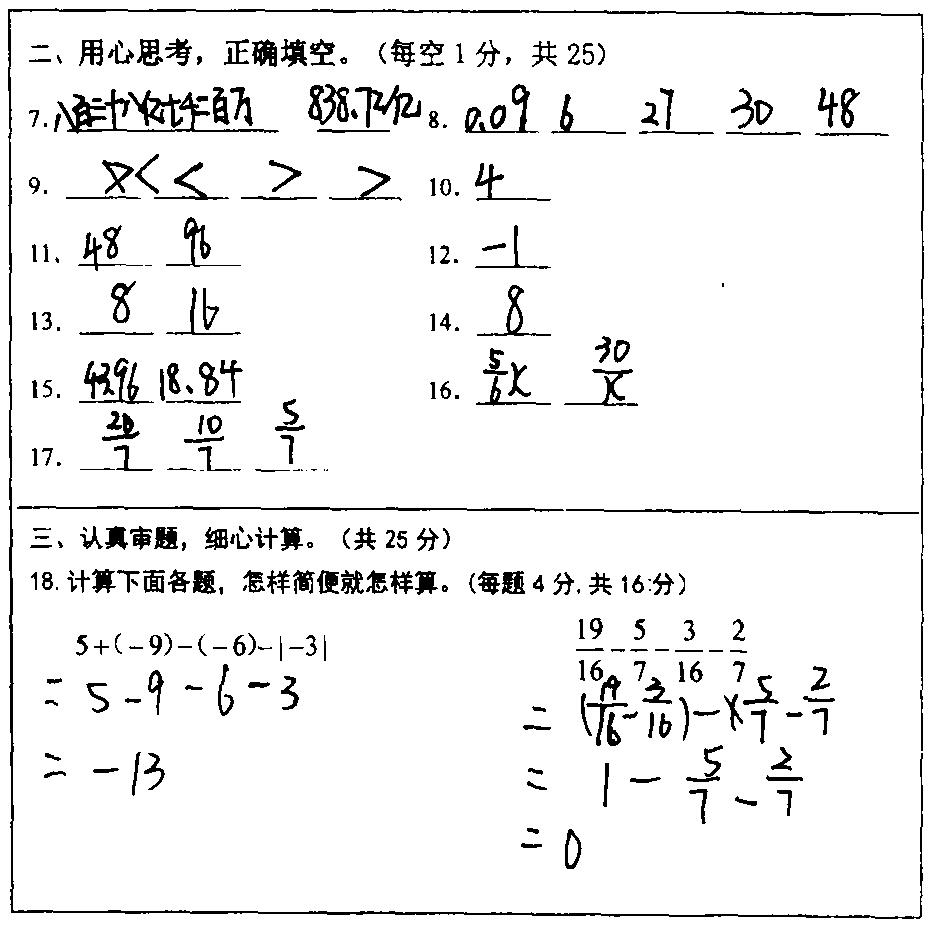 二、用心思考，正确填空。（每空1分，共25）
7. 八百三十八亿七千二百万 838.72亿 8. 0.09 6 27 30 48
9. < < > > 10. 4
11. 48 96 12. -1
13. 8 16 14. 8
15. 43.96 18.84 16. 5/6x 30/x
17. 20/7 10/7 5/7
三、认真审题，细心计算。（共25分）
18. 计算下面各题，怎样简便就怎样算。（每题4分，共16分）
5+(-9)-(-6)-|-3| 19/16-5/7-3/16-2/7
=5-9-6-3 =(19/16-3/16)-5/7-2/7
=-13 =1-5/7-2/7
=0